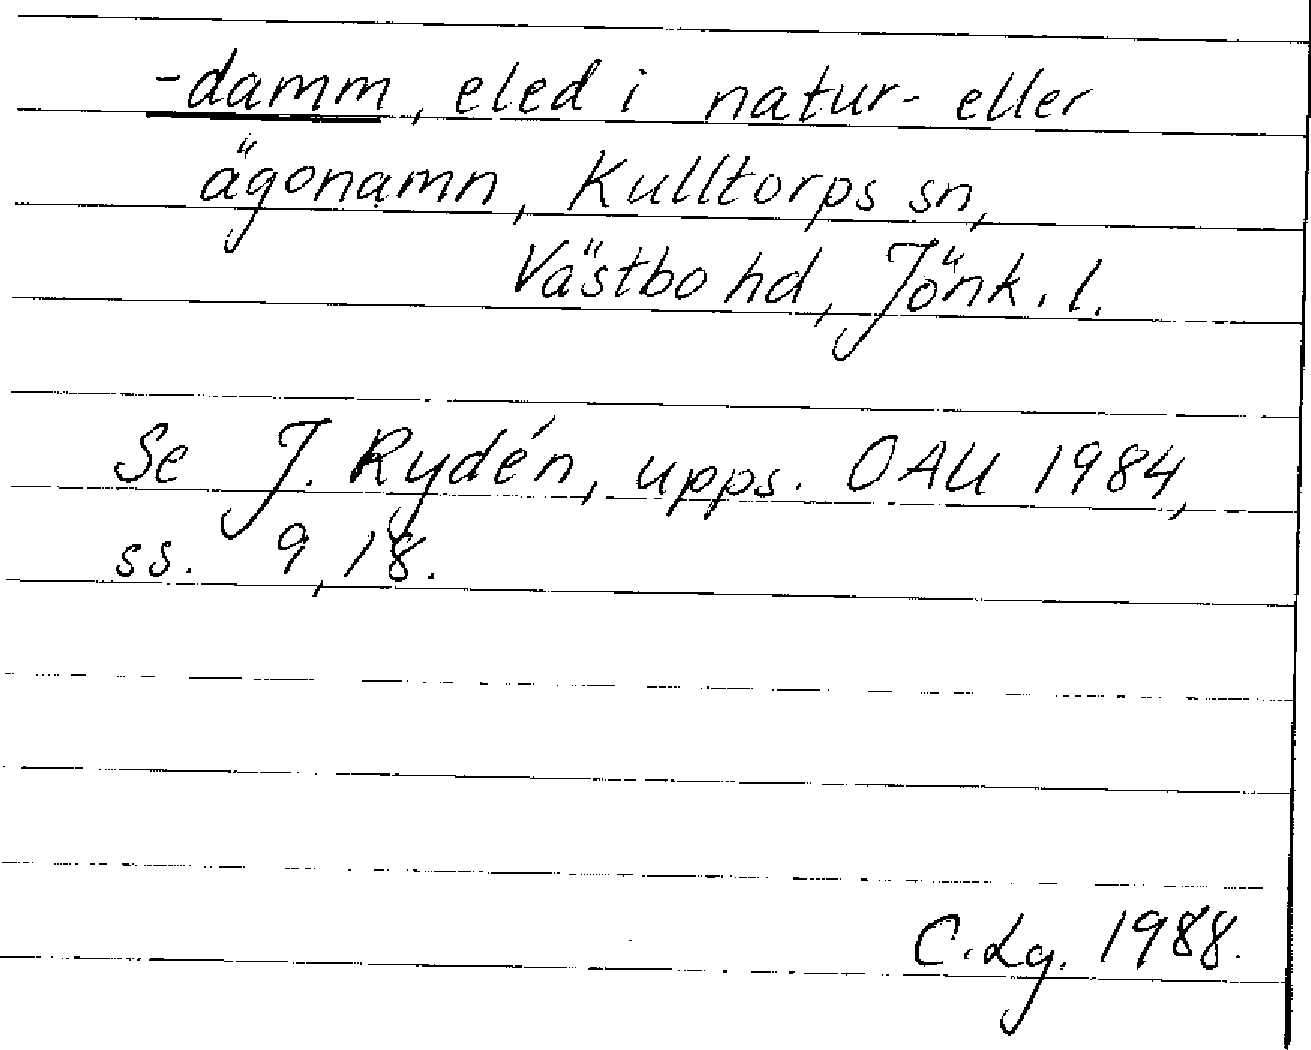 -damm, eled i natur- eller
ägonamn, Kulltorps sn,
Västbo hd, Jönk. l.
Se J. Rydén, upps. OAU 1984,
ss. 9, 18.
C. Lg. 1988.